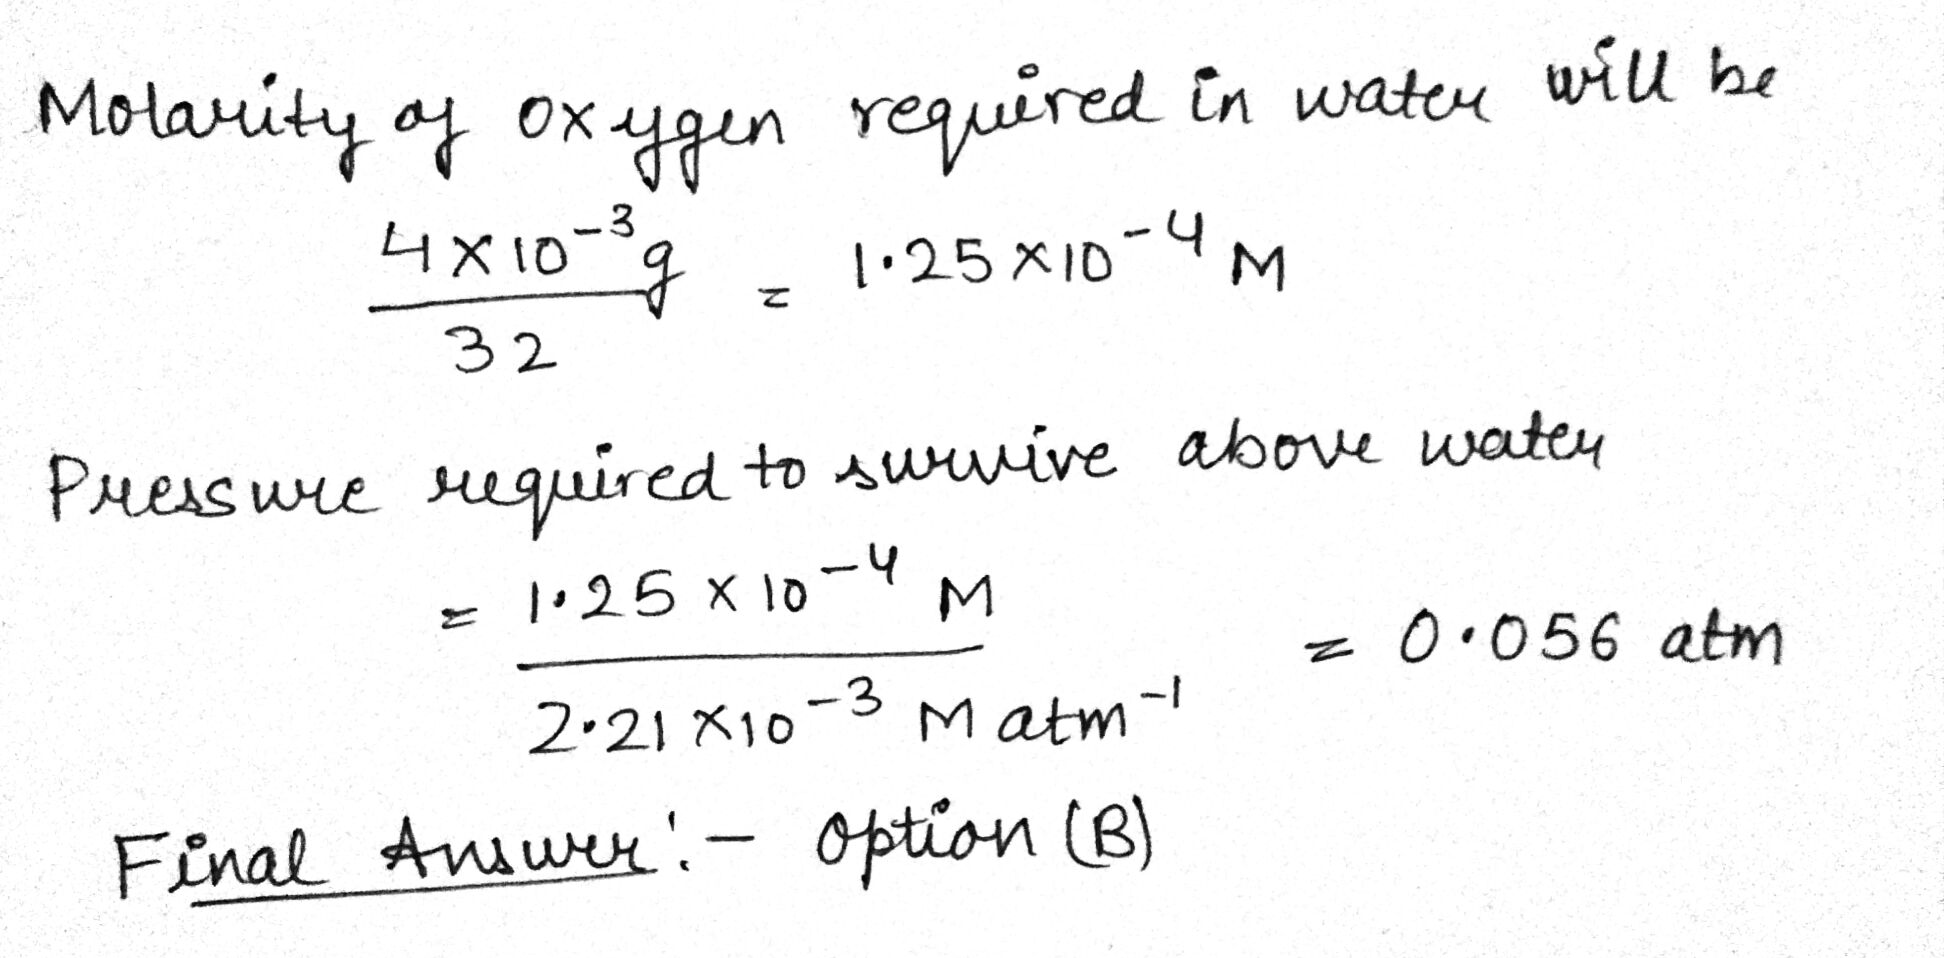 Molarity of oxygen required in water will be
4 × 10⁻³ g / 32 = 1.25 × 10⁻⁴ M
Pressure required to survive above water
= 1.25 × 10⁻⁴ M / 2.21 × 10⁻³ M atm⁻¹ = 0.056 atm
Final Answer :- Option (B)